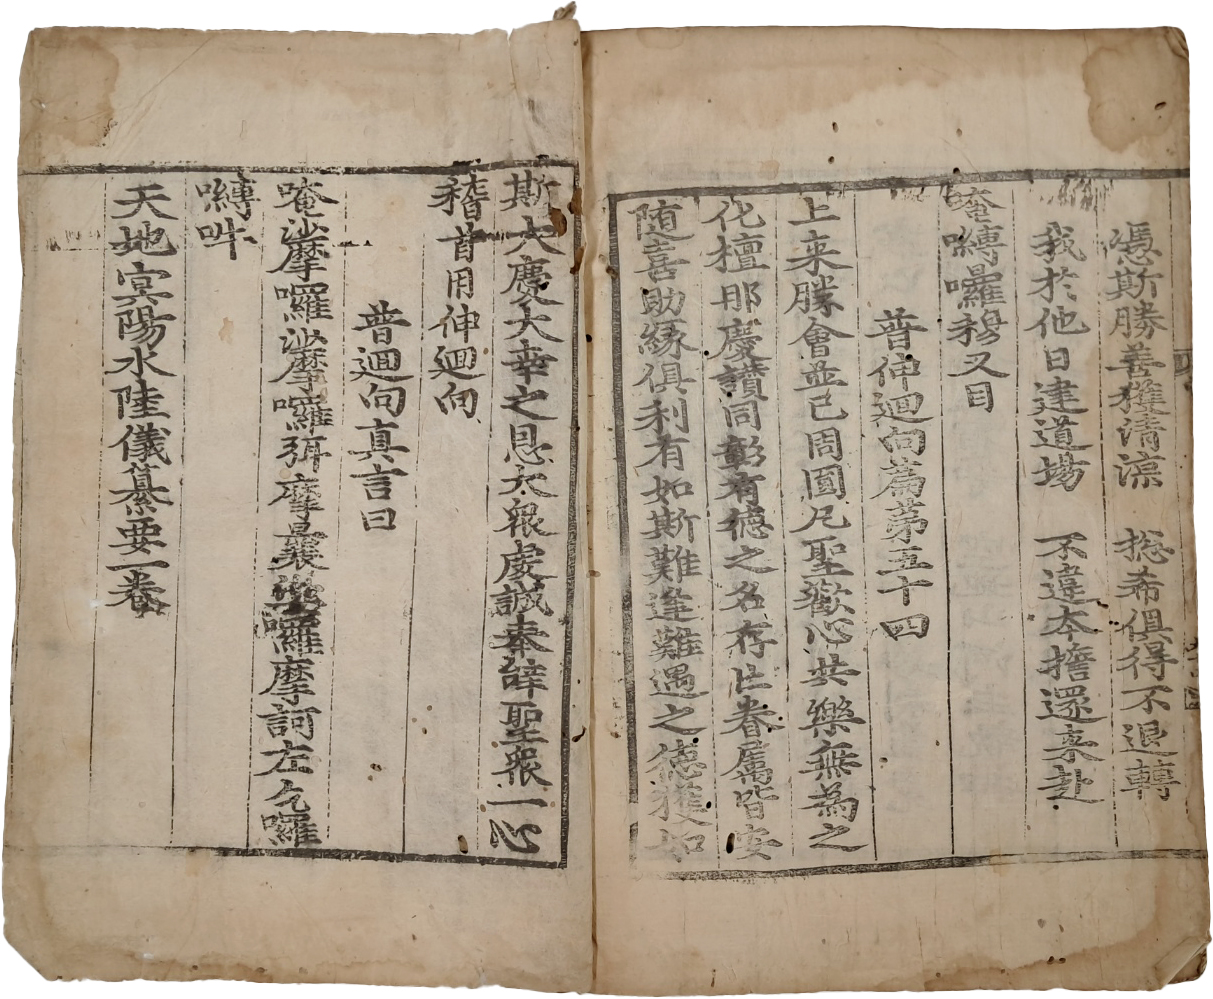 憑斯勝善獲清涼　惣希俱得不退轉
我於他日建道場　不違本擔還来赴
唵嚩曩囉穆叉目
普伸迴向篇苐五十四
上来勝會並已周圓凢聖歡心共樂無為之
化檀那慶讃同彰有德之名存亡眷属皆安
随喜助緣俱利有如斯難逢難遇之德獲如
斯大慶大幸之恩大衆虔誠奉辝聖衆一心
稽首用伸迴向
普迴向真言曰
唵娑摩囉娑摩囉弭摩曩囉摩訶左乞囉
嚩吽
天地㝠陽水陸儀纂要一卷